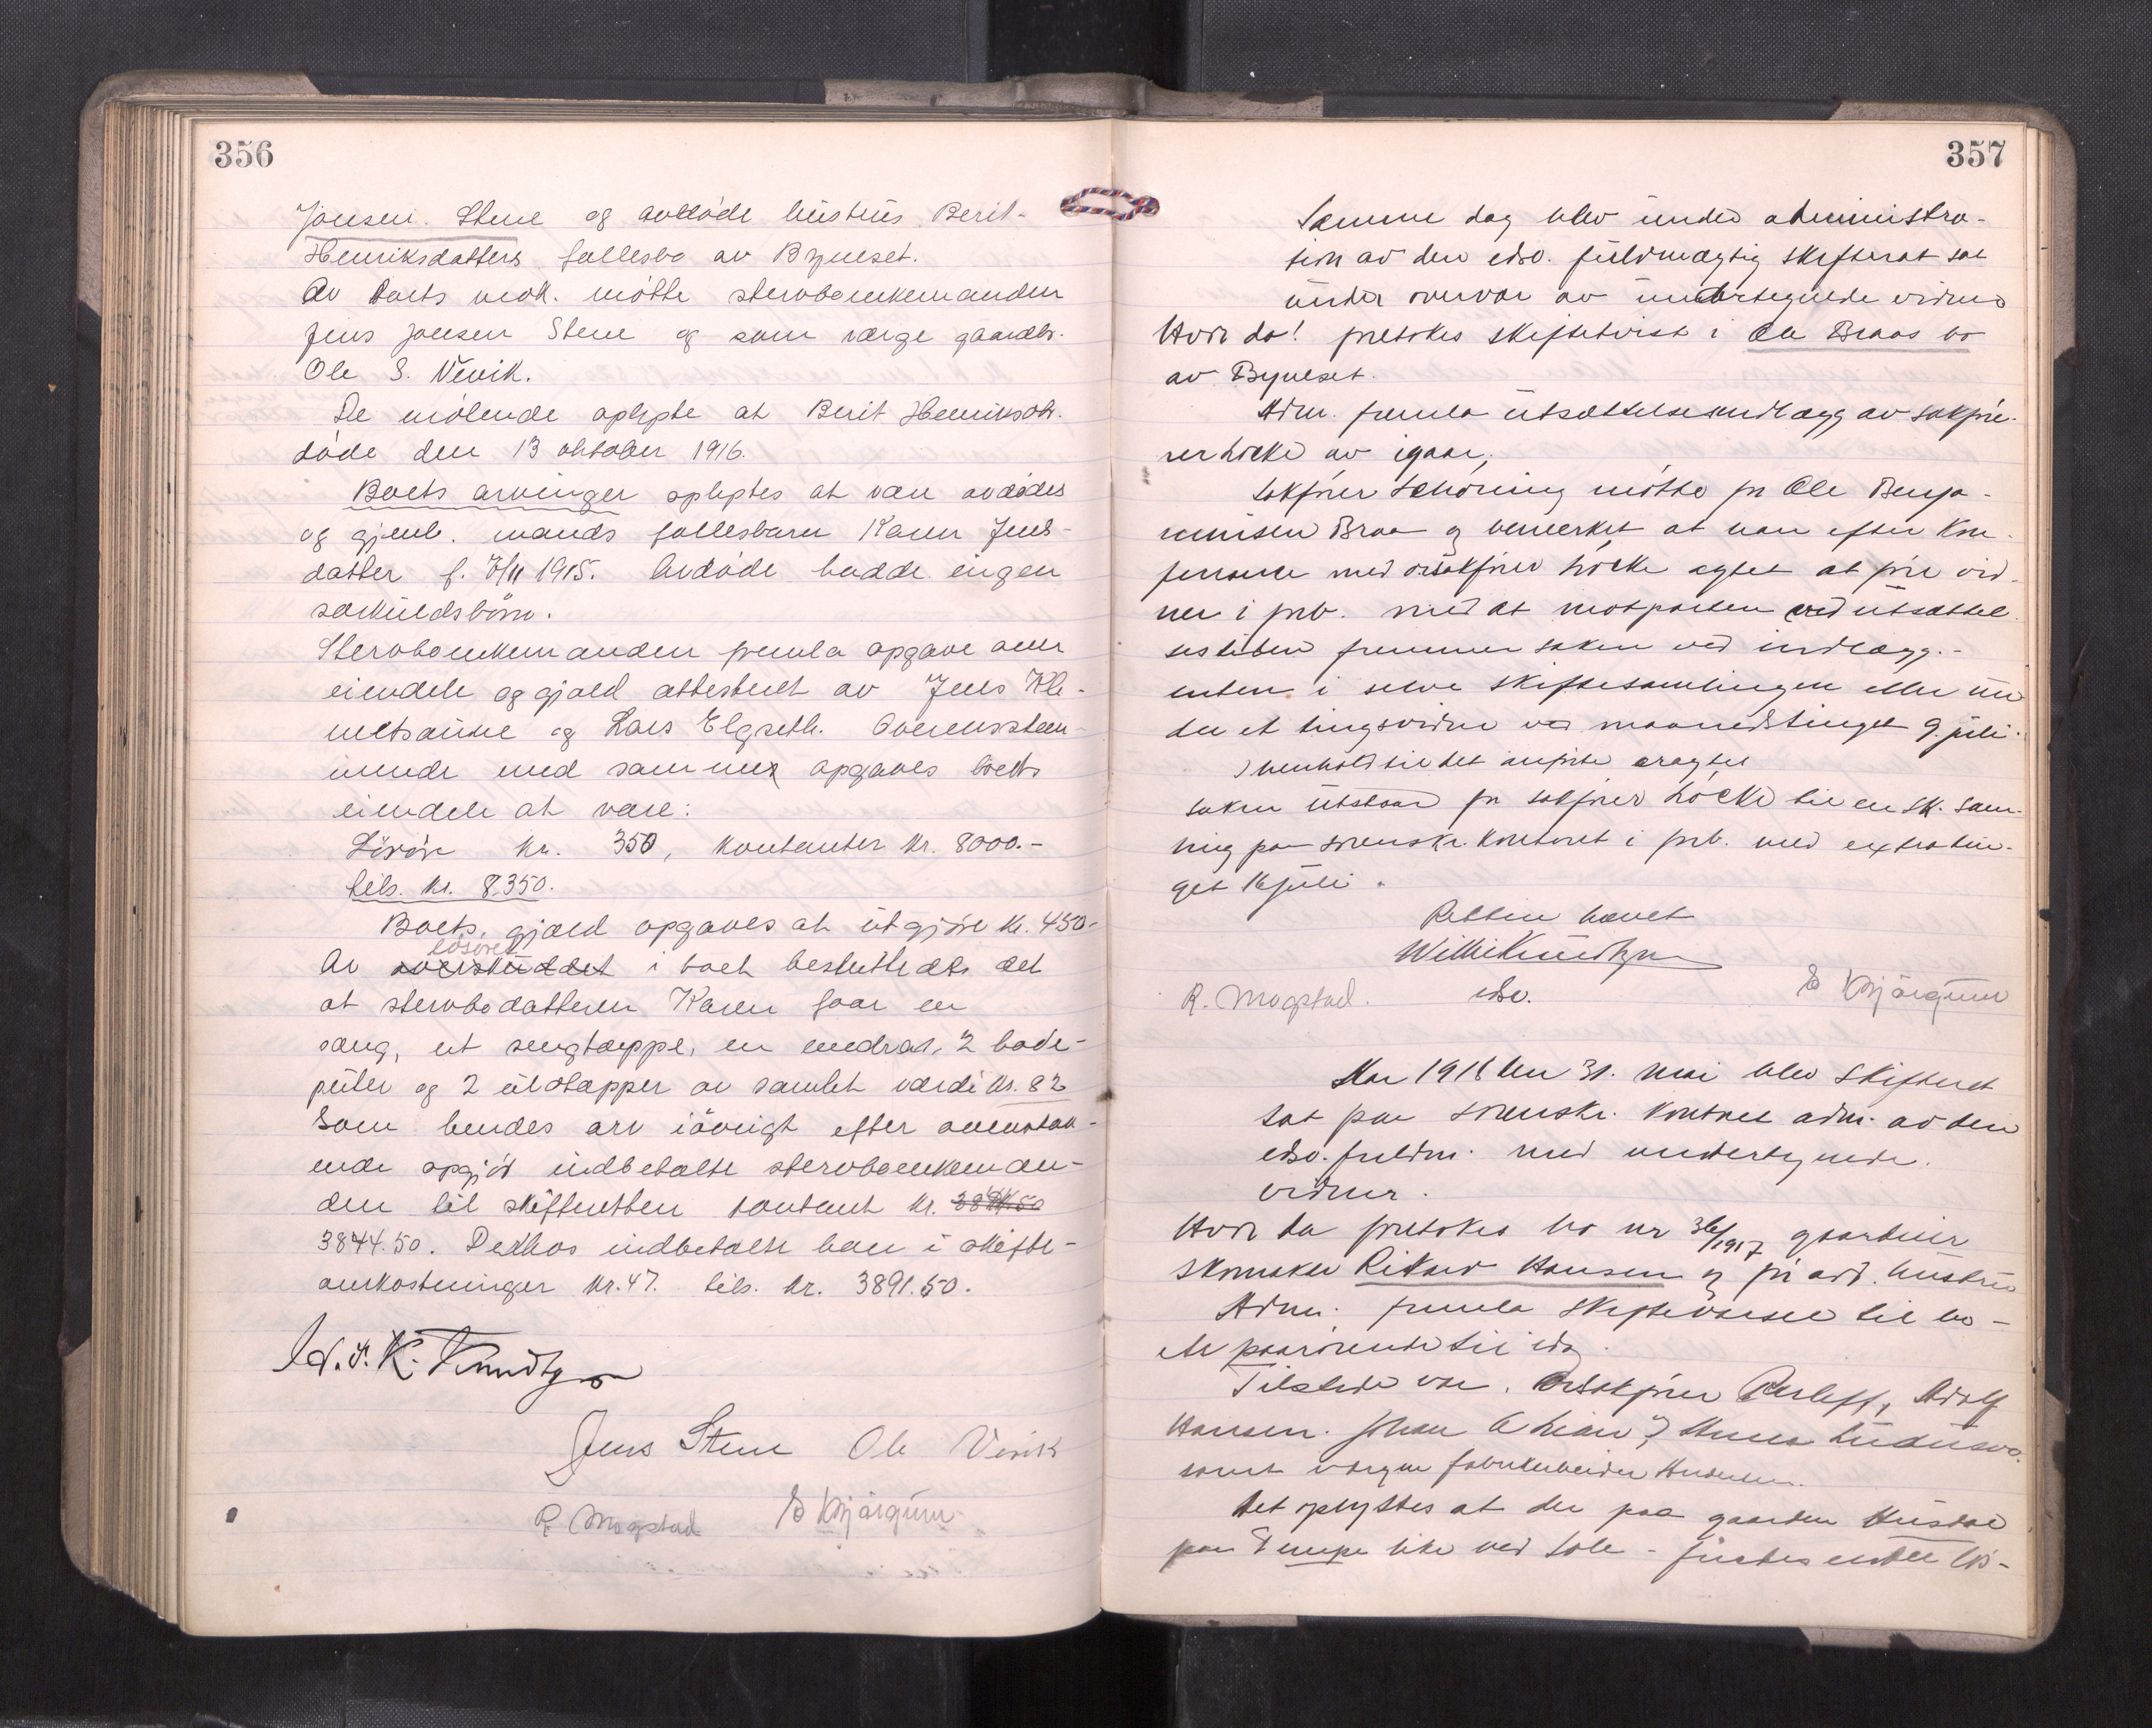 356
Jonsen Stene og avdøde hustrus Berit
Henriksdatters fællesbo av Bynesset.
Av boets vedk. møtte stervboenkemanden
Jens Jonsen Stene og som værge gaardbr.
Ole S. Vevik.
De møtende oplyste at Berit Henriksdtr.
døde den 13 oktober 1916.
Boets arvinger oplystes at være avdødes
og gjenl. mands fællesbarn Karen Jens-
datter f. 7/11 1915. Avdøde hadde ingen
særkuldsbørn.
Stervboenkemanden fremla opgave over
eiendele og gjæld attestert av Jens Kle-
metsaune og Lars Elgseth. Overensstem-
mende med samme opgaves boets
eiendele at være:
Løsøre kr. 350, kontanter kr. 8000.-
tils. kr. 8350.
Boets gjæld opgaves at utgjøre kr. 450-
løsøret
Av overskuddet i boet besluttedes det
at stervbodatteren Karen faar en
seng, et sengtæppe, en madras, 2 hode-
puter og 2 uldtæpper av samlet værdi kr. 82
Som hendes arv iøvrigt efter ovenstaa-
ende opgjør indbetalte stervboenkeman-
den til skifteretten kontant kr. 3844.50
3844.50. Derhos indbetalte han i skifte-
omkostninger kr. 47. tils. kr. 3891.50.
Jens Stene Ole Vevik
R. Mogstad E Kjørgum
357
Samme dag blev under administra-
tion av den edsv. fuldmægtig skifteret sat
under overvær av undertegnede vidner
Hvor da! foretokes skiftetvist i Ole Braas bo
av Bynesset.
Adm. fremla utsættelsesindlægg av sakfø-
rer Løcke av igaar,
Sakfører Schøning møtte for Ole Benja-
minsen Braa og bemerket at han efter kon-
ferance med orsakfører Løcke agtet at føre vid-
ner i forb. med at motparten ved utsættel-
sestiden fremmer saken ved indlægg.-
enten i selve skiftesamlingen eller un-
der et tingsvidne ved maanedstinget 9. juli.
I henhold til det anførte eragtes
saken utstaar for sakfører Løcke til en sk. sam-
ling paa sorenskr. kontoret i forb. med extratin-
get 16 juli.
Retten hævet
Willie Knudtzon
edsv.
R. Mogstad. E Kjørgum
Aar 1918 den 31. mai blev skifteret
sat paa sorenskr. kontoret adm. av den
edsv. fuldm. med undertegnede
vidner.
Hvor da foretokes bo nr 36/1917 gaardeier
skomaker Rikard Hansen og før avd. hustru
Adm. fremla skiftevarsel til bo-
ets paarørende til idag.
Tilstede var. Orsakfører Rerleff, Adolf
Hansen. Johan
samt værgen fabrikarbeider
Det oplystes at der paa gaarden
paa Tempe like ved